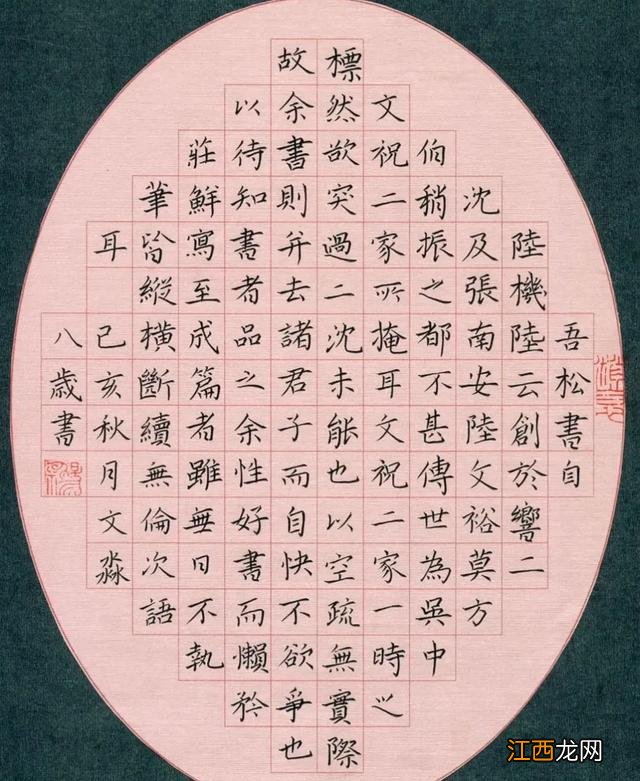 吾松書自
陸機陸云創於響二
沈及張南安陸文裕莫方
伯稍振之都不甚傳世為吳中
文祝二家所掩耳文祝二家一時之
標然欲突過二沈未能也以空疏無實際
故余書則并去諸君子而自快不欲爭也
以待知書者品之余性好書而懶矜
莊鮮寫至成篇者雖無日不執
筆皆縱橫斷續無倫次語
耳 己亥秋月文淼
八歲書
江西龙网